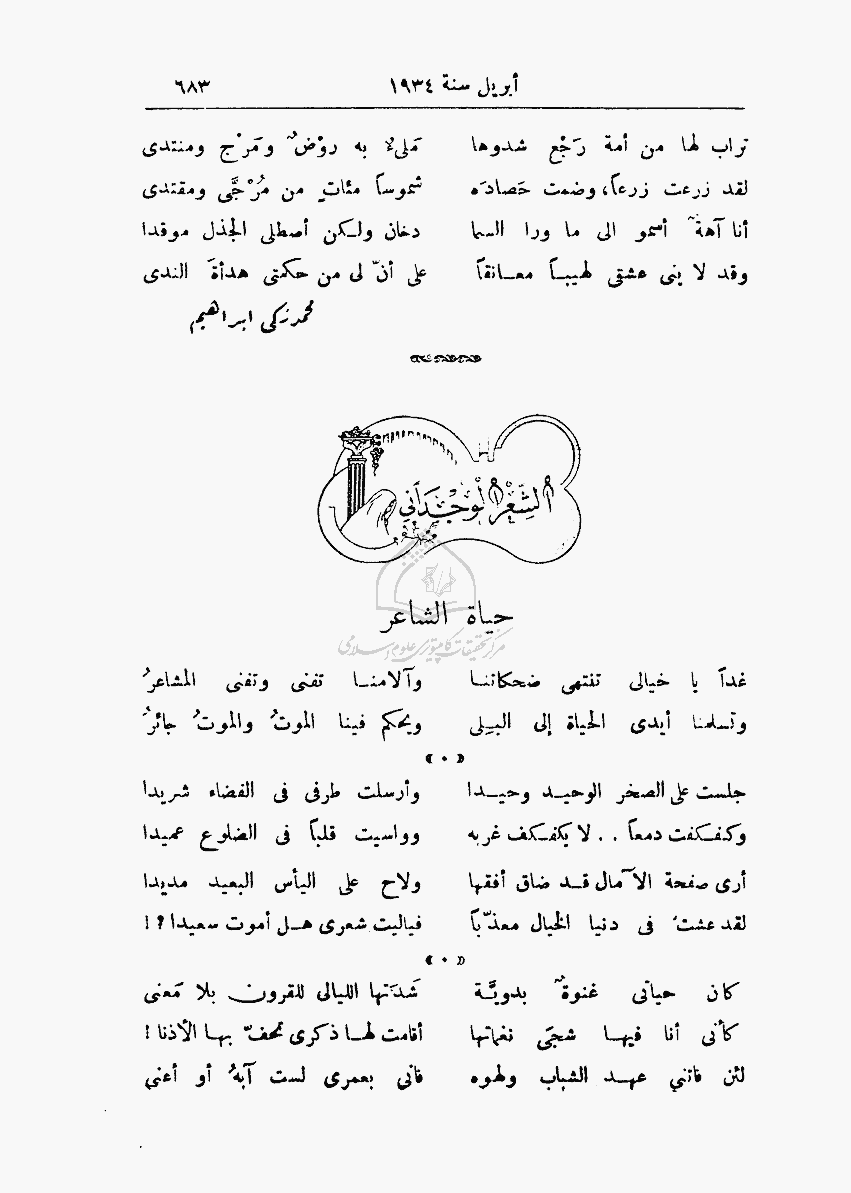 أبريل سنة ١٩٣٤ ٦٨٣
تراب لها من أمة رَجْع شدوها مَلىء به روْضٌ ومَرْج ومنتدى
لقد زرعت زرعاً، وضمت حَصادَه شموساً مئاتٍ من مُرْجَّى ومقتدى
أنا آهةٌ أسمو الى ما ورا السما دخان ولكن أصطلى الجذل موقدا
وقد لا يفى عشقى لهيباً معانقاً على أنّ لى من حكمتى هدأةَ الندى
محمد زكى ابراهيم
الشِّعْرُ الوِجْدَانِي
حياة الشاعر
مركز تحقيقات كامپيوترى علوم اسلامى
غداً يا خيالى تنتهى ضحكاتنا وآلامنا تفنى وتفنى المشاعرُ
وتسلمنا أيدى الحياة إلى البِلى ويحكم فينا الموتُ والموتُ جائرُ
جلست على الصخر الوحيد وحيدا وأرسلت طرفى فى الفضاء شريدا
وكفكفت دمعاً . . لا يكفكف غربه وواسيت قلباً فى الضلوع عميدا
أرى صفحة الآمال قد ضاق أفقها ولاح على اليأس البعيد مديدا
لقد عشتُ فى دنيا الخيال معذّباً فياليت شعرى هل أموت سعيدا ؟ !
كان حياتى غنوةٌ بدويَّة شدَتها الليالى للقرون بلا مَعنى
كأنى أنا فيها شجىّ نغماتها أقامت لها ذكرى تحفّ بها الأذنا !
لئن فاتني عهد الشباب ولهوه فانى بعمرى لست آبهُ أو أعنى